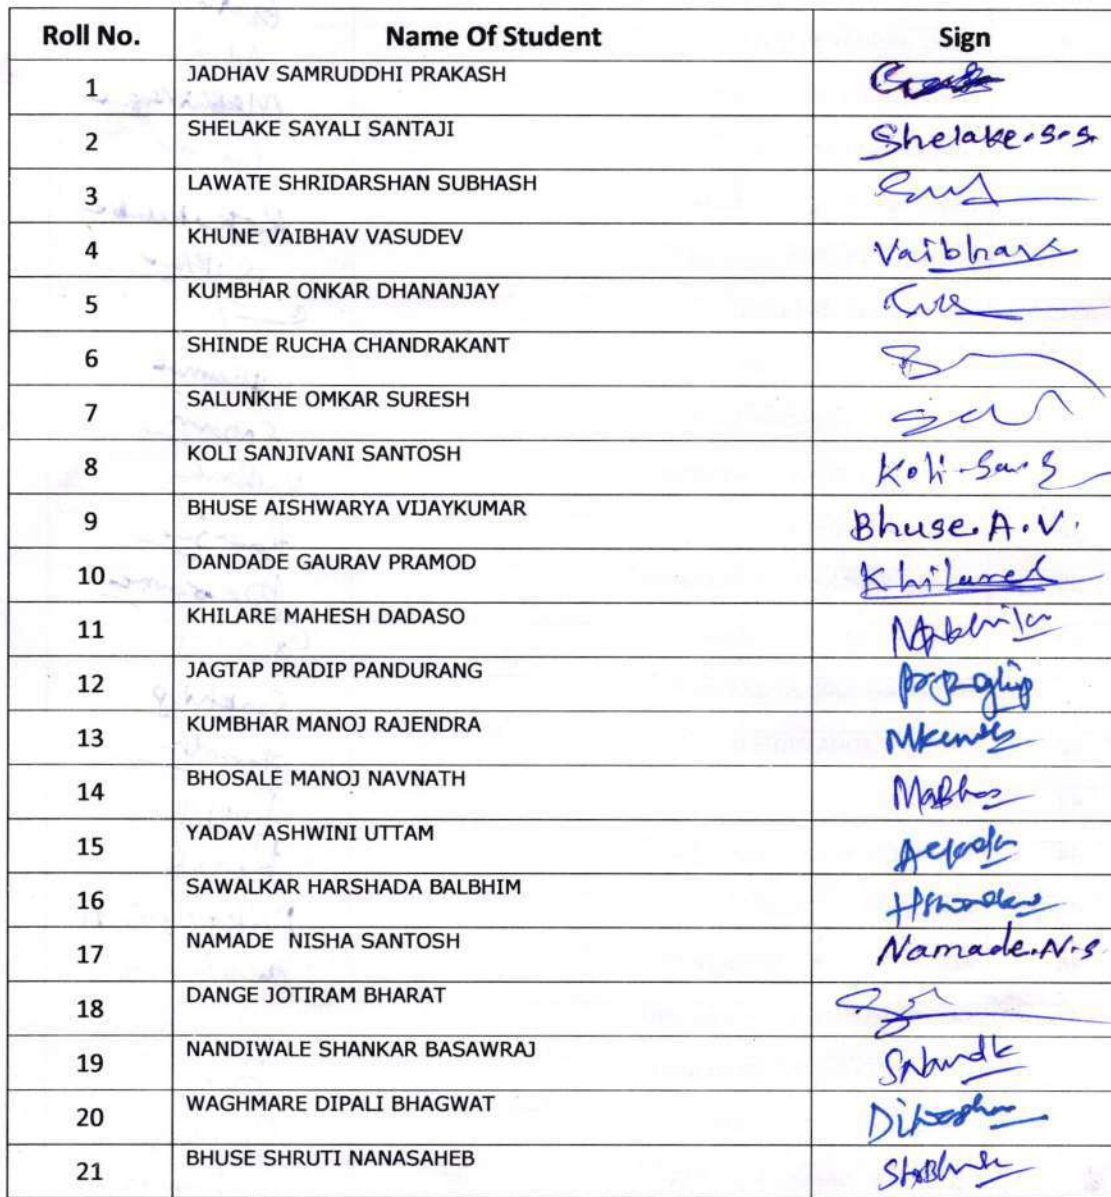 Roll No. Name Of Student Sign
1 JADHAV SAMRUDDHI PRAKASH
2 SHELAKE SAYALI SANTAJI Shelake.S.S.
3 LAWATE SHRIDARSHAN SUBHASH
4 KHUNE VAIBHAV VASUDEV Vaibhav
5 KUMBHAR ONKAR DHANANJAY
6 SHINDE RUCHA CHANDRAKANT
7 SALUNKHE OMKAR SURESH
8 KOLI SANJIVANI SANTOSH Koli
9 BHUSE AISHWARYA VIJAYKUMAR Bhuse.A.V.
10 DANDADE GAURAV PRAMOD
11 KHILARE MAHESH DADASO
12 JAGTAP PRADIP PANDURANG
13 KUMBHAR MANOJ RAJENDRA
14 BHOSALE MANOJ NAVNATH
15 YADAV ASHWINI UTTAM
16 SAWALKAR HARSHADA BALBHIM
17 NAMADE NISHA SANTOSH Namade.N.S.
18 DANGE JOTIRAM BHARAT
19 NANDIWALE SHANKAR BASAWRAJ
20 WAGHMARE DIPALI BHAGWAT
21 BHUSE SHRUTI NANASAHEB